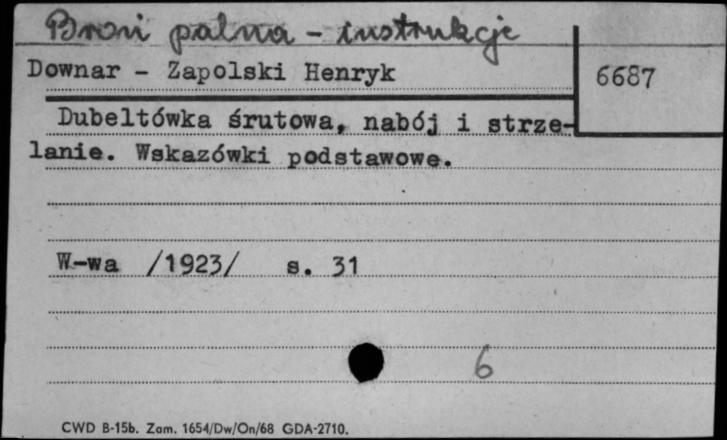 Broń palna - instrukcje
Downar - Zapolski Henryk
6687
Dubeltówka śrutowa, nabój i strze-
lanie. Wskazówki podstawowe.
W-wa /1923/ s. 31
6
CWD B-15b. Zam. 1654/Dw/On/68 GDA-2710.